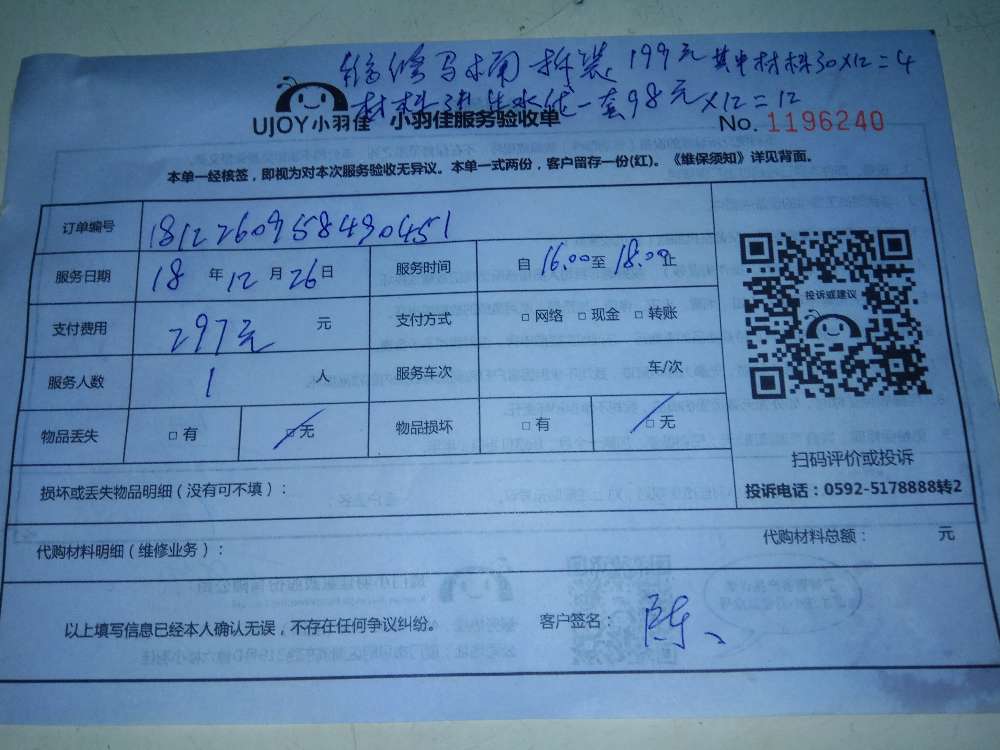 维修马桶拆装199元其中材料30×12=4
材料进出水优一套98元×12=12
UJOY小羽佳 小羽佳服务验收单
No. 1196240
本单一经核签，即视为对本次服务验收无异议。本单一式两份，客户留存一份(红)。《维保须知》详见背面。
订单编号 1812260958490451
服务日期 18 年 12 月 26 日 服务时间 自 16.00 至 18.00 止
支付费用 297元 元 支付方式 □ 网络 □ 现金 □ 转账
服务人数 1 人 服务车次 车/次
物品丢失 □ 有 □ 无 物品损坏 □ 有 □ 无
投诉或建议
扫码评价或投诉
投诉电话：0592-5178888转2
损坏或丢失物品明细（没有可不填）：
代购材料明细（维修业务）： 代购材料总额： 元
以上填写信息已经本人确认无误，不存在任何争议纠纷。 客户签名： 陈